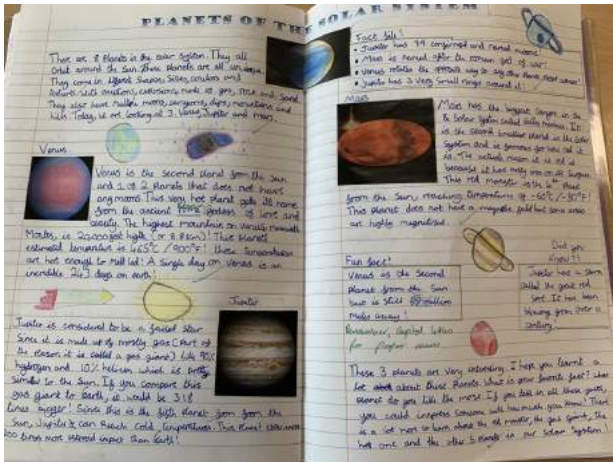 PLANETS OF THE SOLAR SYSTEM
There are 8 Planets in the solar system. They all
orbit around the Sun. These Planets are all unique.
They come in different Shapes, Sizes, colours and
made of gas, rock and Sand.
They also have multiple moons, canyons, dips, mountains and
hills. Today, we are looking at Venus, Jupiter and mars.
Venus
Venus is the second planet from the sun
and 1 of 2 Planets that does not have
any moons. This very hot planet gets its name
from the ancient goddess of love and
beauty. The highest mountain on venus
Montes, is high (or 8.8km)! This Planets
estimated temperature is 465°C / 900°F! these temperatures
are hot enough to melt lead! A Single day on Venus is an
incredible 243 days on earth!
Jupiter
Jupiter is considered to be a failed Star
Since it is made up of mostly gas (Part of
the reason it is called a gas giant) like 90%
hydrogen and 10% helium which is
similar to the Sun. If you compare this
gas giant to earth, it would be 318
times bigger! Since this is the fifth planet from from the
sun, Jupiter can Reach cold temperatures. This Planet
more asteroid impact than Earth!
Fact file!
• Jupiter has 79 confirmed and named moons!
• Mars is named after the roman god of war!
• Venus rotates the opposite way to
• Jupiter has 3 very Small rings around it!
Mars
Mars has the biggest canyon in the
Solar System called Valles marineris. It
is the second smallest planet in the Solar
System and is famous for how red it
is. The actual reason it is red is
because it has rusty iron on its surface.
This red monster is the 4th
from the Sun, reaching temperatures of -60°C / -80°F!
This planet does not have a magnetic field but some areas
are highly magnetised.
Fun fact!
Venus is the Second
planet from the Sun
but is still million
miles away!
Remember, capital letters
for proper nouns
Did you
Know?!
Jupiter has a storm
called the great red
spot. It has been
blowing for over a
century.
These 3 planets are very interesting. I hope you learnt a
lot about these Planets. What is your favorite fact? What
planet do you like the most? If you take in all these facts,
you could impress Someone with how much you know! There
is a lot more to learn about the red monster, the gas giant, the
hot one and the other 5 planets in our Solar System!